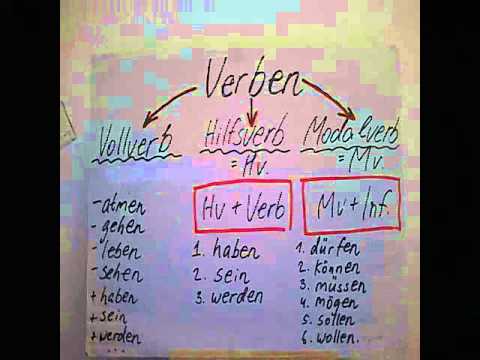 Verben
Vollverb
- atmen
- gehen
- leben
- sehen
+ haben
+ sein
+ werden
Hilfsverb
= Hv.
Hv + Verb
1. haben
2. sein
3. werden
Modalverb
= Mv.
Mv + Inf.
1. dürfen
2. können
3. müssen
4. mögen
5. sollen
6. wollen.